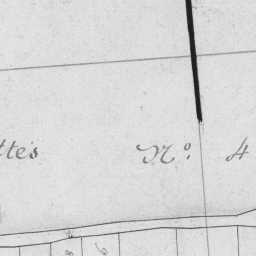 ttes N.º 4
8